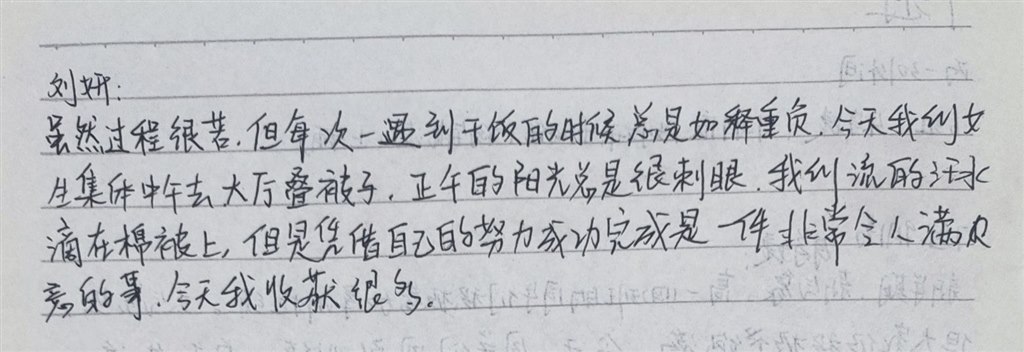 刘妍:
虽然过程很苦.但每次一遇到干饭的时候总是如释重负.今天我们女
生集体中午去大厅叠被子.正午的阳光总是很刺眼.我们流的汗水
滴在棉被上,但是凭借自己的努力成功完成是一件非常令人满
意的事.今天我收获很多.